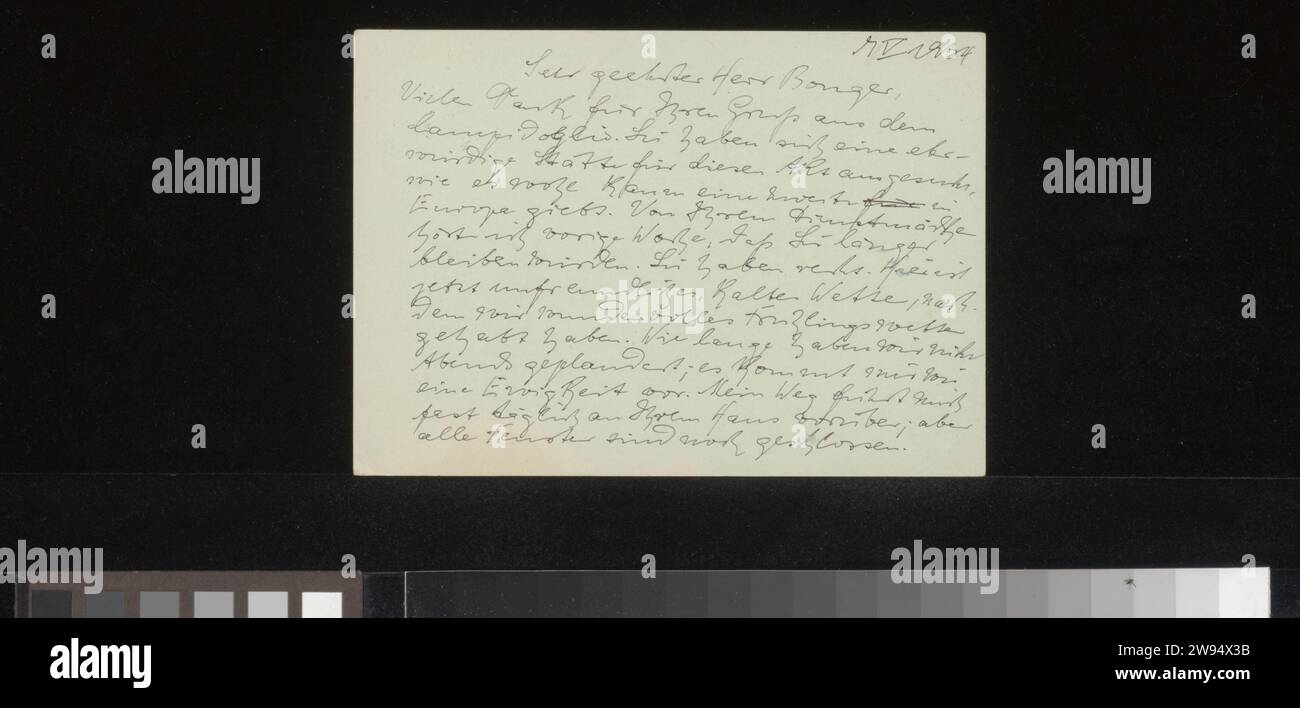 9 V 1924
Sehr geehrter Herr Bonger,
Vielen Dank für Ihren Gruß aus dem
Campidoglio. Sie haben sich eine ehr-
würdige Stätte für diesen Akt ausgesucht,
wie es wohl kaum eine zweite in
Europa giebt. Von Ihrem Dienstmädchen
hörte ich vorige Woche, daß Sie länger
bleiben würden. Sie haben recht. Hier ist
jetzt unfreundliches kaltes Wetter, nach-
dem wir wundervolles Frühlingswetter
gehabt haben. Wie lange haben wir nicht
Abends geplaudert; es kommt mir wie
eine Ewigkeit vor. Mein Weg führt mich
fast täglich an Ihrem Haus vorüber; aber
alle Fenster sind noch geschlossen.
alamy
Image ID: 2W94X3B
www.alamy.com